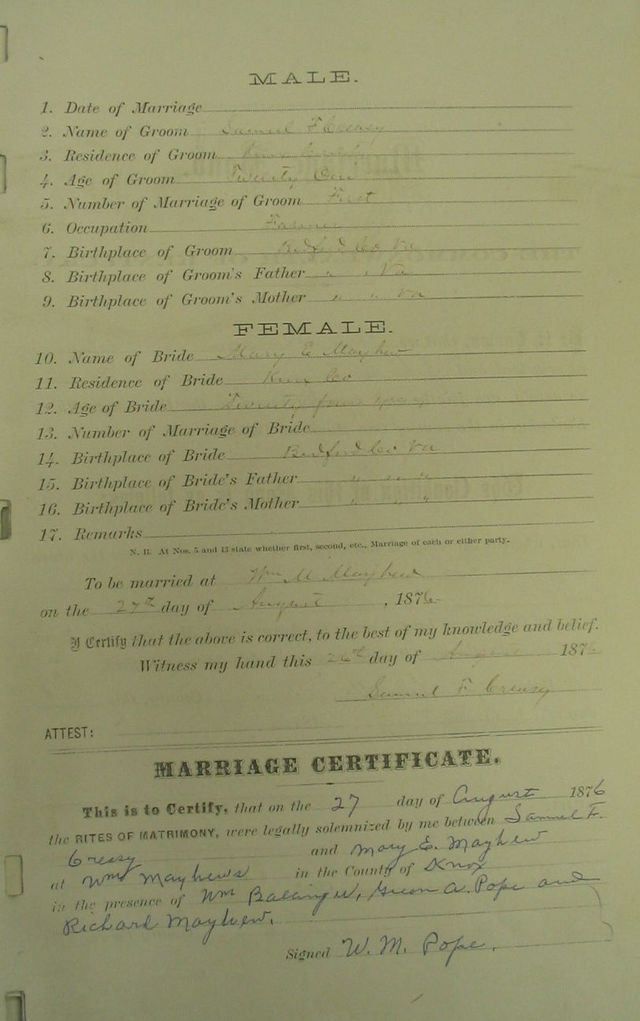 MALE.
1. Date of Marriage
2. Name of Groom Samuel F Creasy
3. Residence of Groom Knox
4. Age of Groom Twenty One
5. Number of Marriage of Groom First
6. Occupation Farmer
7. Birthplace of Groom Bedford Co Va
8. Birthplace of Groom's Father " " Va
9. Birthplace of Groom's Mother " " Va
FEMALE.
10. Name of Bride Mary E Mayhew
11. Residence of Bride Knox Co
12. Age of Bride Twenty four years
13. Number of Marriage of Bride
14. Birthplace of Bride Bedford Co Va
15. Birthplace of Bride's Father " " "
16. Birthplace of Bride's Mother " " "
17. Remarks
N. B. At Nos. 5 and 13 state whether first, second, etc., Marriage of each or either party.
To be married at Wm M Mayhew
on the 27th day of August, 1876
I Certify that the above is correct, to the best of my knowledge and belief.
Witness my hand this 26th day of August 1876
Samuel F. Creasy
ATTEST:
MARRIAGE CERTIFICATE.
This is to Certify, that on the 27 day of August 1876
the RITES OF MATRIMONY, were legally solemnized by me between Samuel F.
Creasy and Mary E. Mayhew
at Wm Mayhews in the County of Knox
in the presence of Wm Balinger, Green A. Pope and
Richard Mayhew.
Signed W. M. Pope.